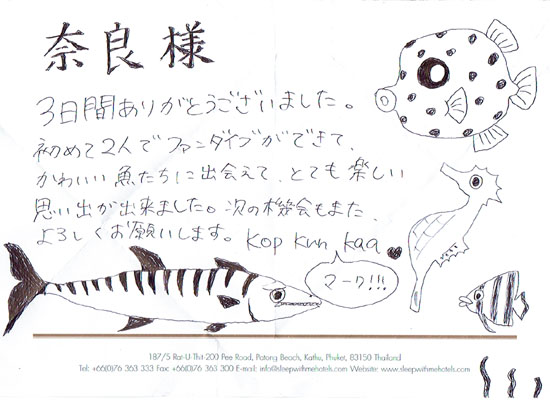 奈良様
3日間ありがとうございました。
初めて2人でファンダイブができて、
かわいい魚たちに出会えて、とても楽しい
思い出が出来ました。次の機会もまた、
よろしくお願いします。Kop Kun Kaa
マーク!!!
187/5 Rat-U-Thit-200 Pee Road, Patong Beach, Kathu, Phuket, 83150 Thailand
Tel: +66(0)76 363 333 Fax: +66(0)76 363 300 E-mail: info@sleepwithmehotels.com Website: www.sleepwithmehotels.com